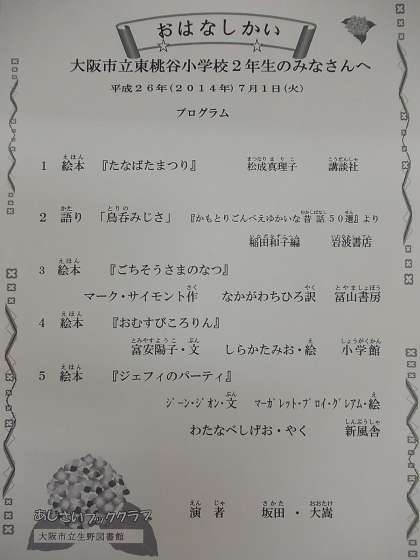 おはなしかい
大阪市立東桃谷小学校２年生のみなさんへ
平成２６年(２０１４年)７月１日(火)
プログラム
1 絵本 『たなばたまつり』 松成真理子 講談社
2 語り 「鳥呑みじさ」 『かもとりごんべえゆかいな昔話５０選』より
稲田和子編 岩波書店
3 絵本 『ごちそうさまのなつ』
マーク・サイモント作 なかがわちひろ訳 冨山書房
4 絵本 『おむすびころりん』
富安陽子・文 しらかたみお・絵 小学館
5 絵本 『ジェフィのパーティ』
ジーン・ジオン・文 マーガレット・ブロイ・グレアム・絵
わたなべしげお・やく 新風舎
あじさいブッククラブ
大阪市立生野図書館
演者 坂田・大嵩